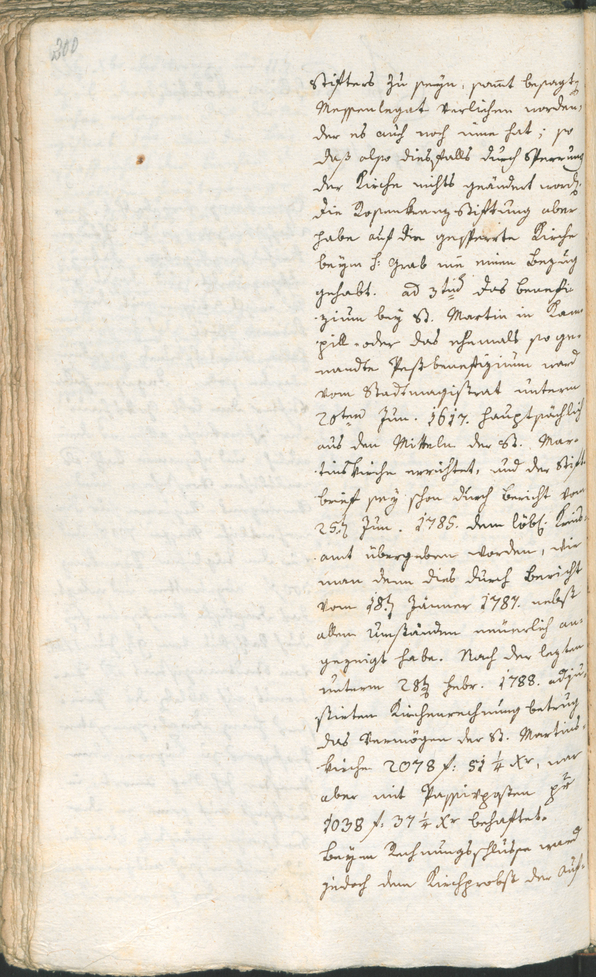 300
Stifters zu seyn, samt besagt
Messenlegat verliehen worden,
der es auch noch inne hat; so
daß also diesfalls durch Sperrung
der Kirche nichts geändert word.
die Rosenkranz Stiftung aber
habe auf die gesperrte Kirche
beym h: Grab nie einen Bezug
gehabt. ad 3tium das Benefi-
zium bey St. Martin in Kam-
pill oder das ehemals so ge-
nandte Pestbenefizium ward
vom Stadtmagistrat unterm
20ten Jun. 1617. hauptsächlich
aus den Mitteln der St. Mar-
tinskirche errichtet, und der Stift-
brief sey schon durch Bericht vom
25t Jun. 1785. dem löbl: Kreis-
amt übergeben worden, wie
man denn dies durch Bericht
vom 18t Jänner 1787. nebst
allen Umständen neuerlich an-
gezeigt habe. Nach der letzten
unterm 28t Febr. 1788. adju-
stirten Kirchenrechnung betrug
das Vermögen der St. Martins-
kirche 2078 f: 51 ¼ Xr, war
aber mit Passivposten pr
1038 f: 37 ¼ Xr behaftet.
Beym Rechnungsschlusse ward
jedoch dem Kirchprobst der Auf-